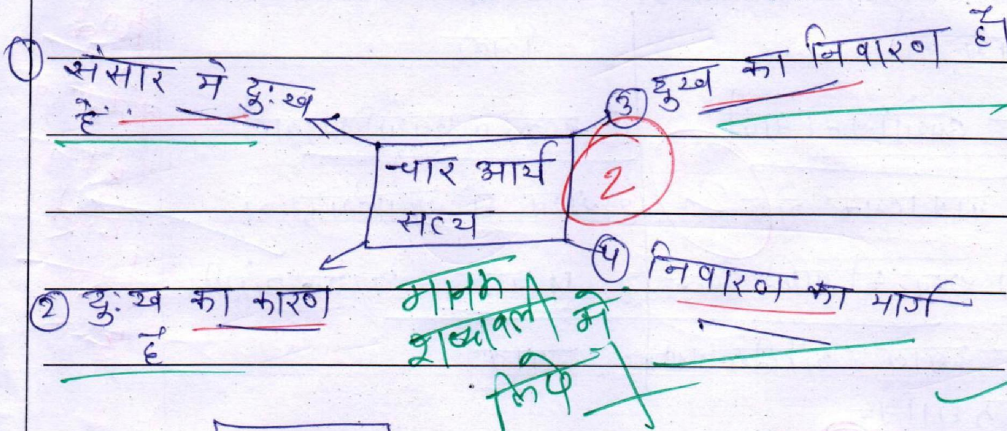 ① संसार में दुःख
है
③ दुख का निवारण है।
चार आर्य
सत्य
2
② दुःख का कारण
है
④ निवारण का मार्ग
मानक
शब्दावली में
लिखें